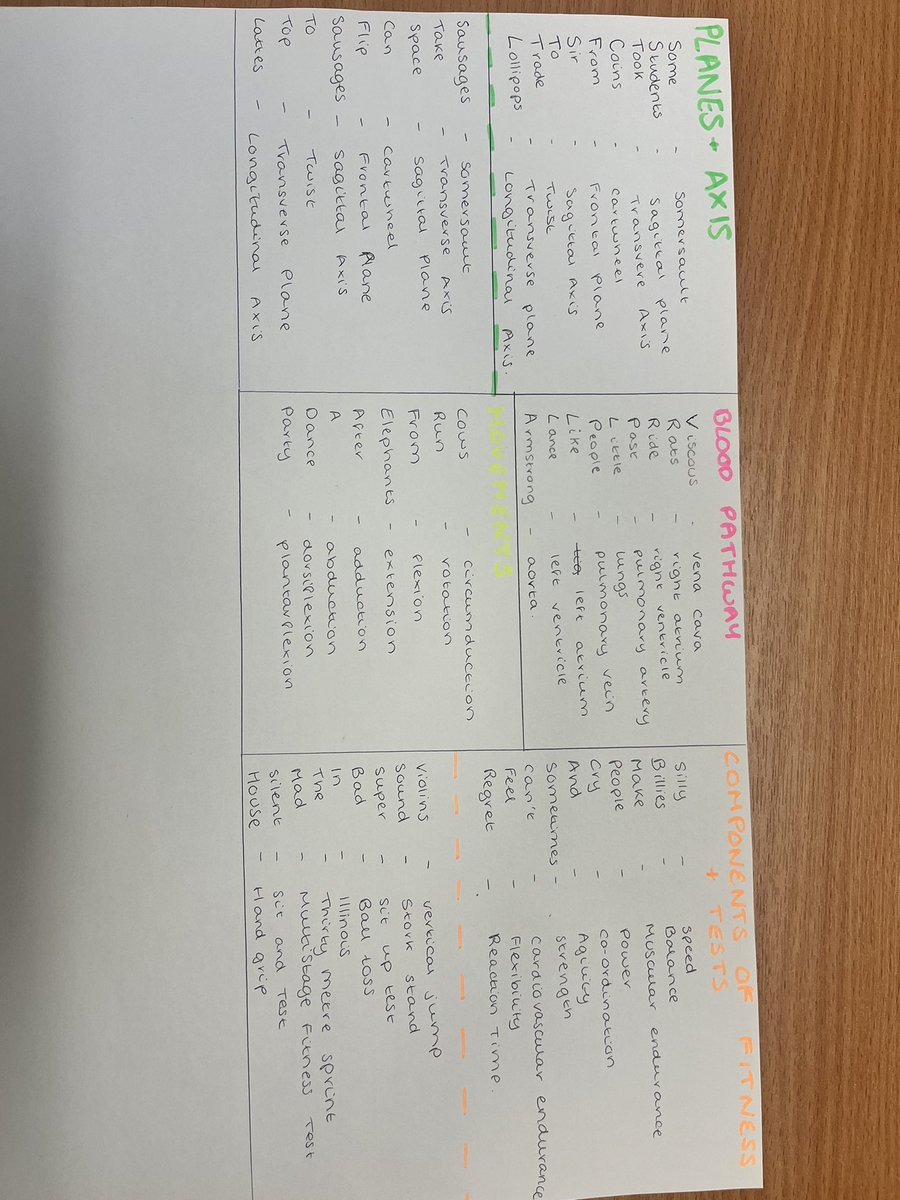 PLANES + AXIS
Some - Somersault
Students - Sagittal plane
Took - Transvere Axis
Coins - cartwheel
From - Frontal plane
Sir - Sagital Axis
To - Twist
Trade - Transverse plane
Lollipops - Longitudinal Axis.
Sausages - Somersault
Take - Transverse Axis
Space - Sagittal Plane
Can - Cartwheel
Flip - Frontal Plane
Sausages - Sagittal Axis
To - Twist
Top - Transverse Plane
Lattes - Longitudinal Axis
BLOOD PATHWAY
Viscous - vena cava
Rats - right atrium
Ride - right ventricle
Past - pulmonary artery
Little - lungs
People - pulmonary vein
Like - left atrium
Lance - left ventricle
Armstrong - aorta.
MOVEMENTS
Cows - circumduction
Run - rotation
From - flexion
Elephants - extension
After - adduction
A - abduction
Dance - dorsiflexion
Party - plantarflexion
COMPONENTS OF FITNESS
+ TESTS
Silly - Speed
Billies - Balance
Make - Muscular endurance
People - Power
Cry - Co-ordination
And - Agility
Sometimes - Strength
Can't - Cardiovascular endurance
Feel - Flexibility
Regret - Reaction Time.
Violins - vertical jump
Sound - Stork stand
Super - Sit up test
Bad - Ball toss
In - Illinois
The - Thirty metre sprint
Mad - Multistage Fitness Test
Silent - Sit and Test
House - Hand grip